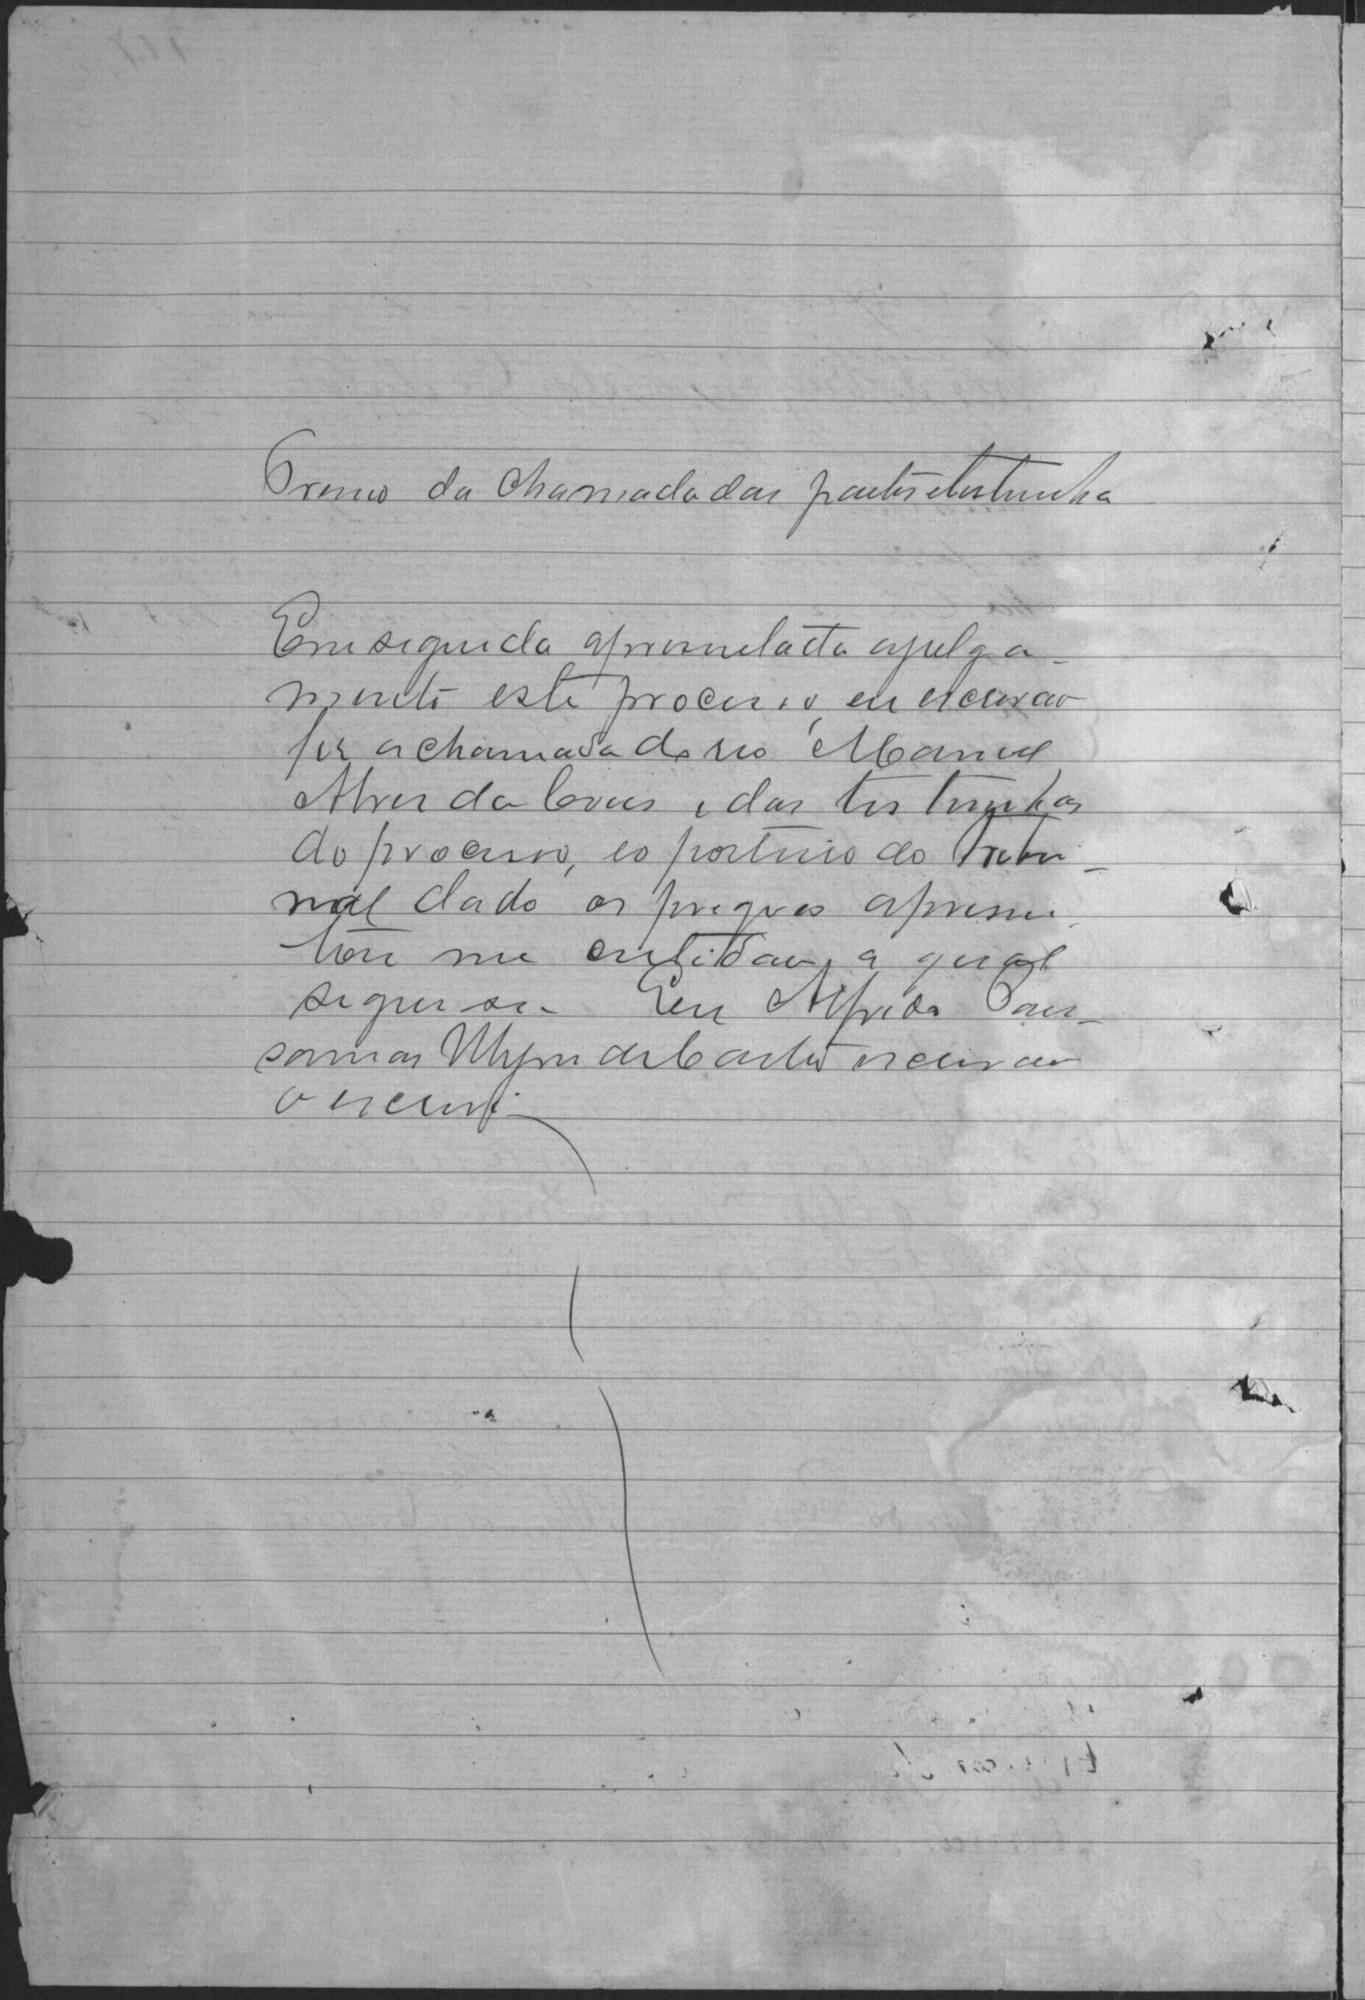 Termo da chamada das partes e testemunha
Em seguida apresentada a julga-
mento este processo, eu escrivão
fez a chamada do reo Manoel
Alves da Cruz e das testemunhas
do processo, e o porteiro do Tribu-
nal dado os pregoes apresen-
tou me certidão, a qual
segue se. Eu Alfredo
de Castro escrivão
o escrevi